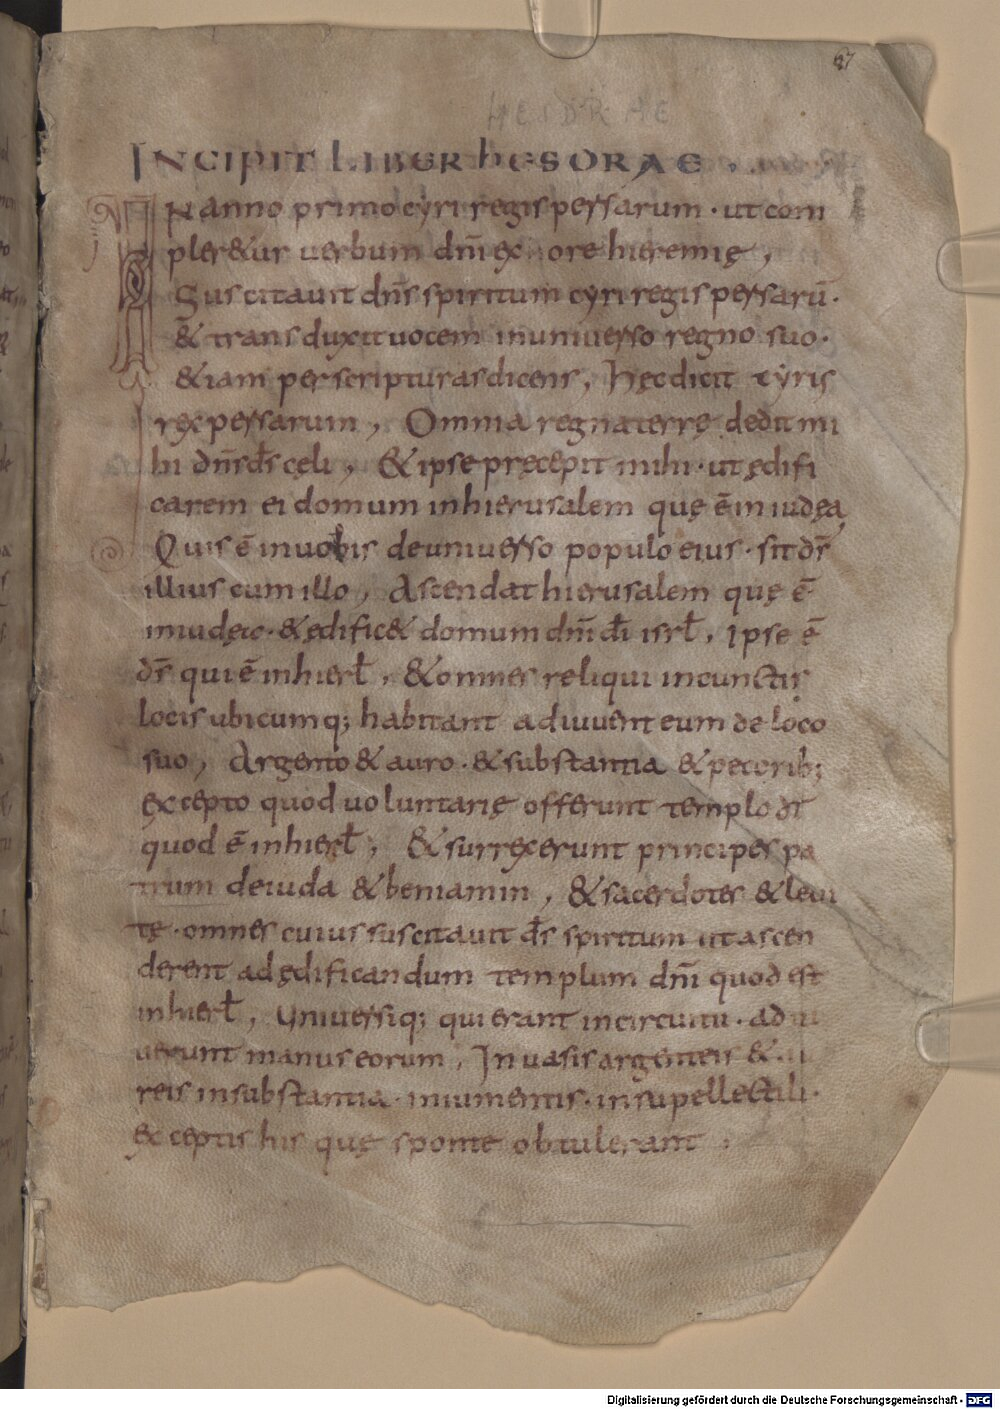 67
HESDRAE
INCIPIT LIBER hESDRAE .
IN anno primo cyri regis persarum · ut com
pler&ur uerbum dnī ex ore hieremię ,
Suscitauit dn̄s spiritum cyri regis persarū ·
& transduxit uocem inuniuerso regno suo ·
&iam per scripturas dicens , hęc dicit cyris
rex persarum , Omnia regna terrę dedit mi
hi dn̄s ds̄ cęli , & ipse pręcepit mihi · ut ędifi
carem ei domum inhierusalem quę ē in iudęa
Quis ē inuobis deuniuerso populo eius · sit ds̄
illius cum illo , Ascendat hierusalem quę ē
iniudęa · & ędific& domum dnī dī isrł , Ipse ē
ds̄ qui ē inhierł , & omnes reliqui incunctis
locis ubicumq; habitant adiuuent eum de loco
suo , Argento & auro · & substantia & pecorib;
excepto quod uoluntarię offerunt templo dī
quod ē inhierł , & surrexerunt principes pa
trum deiuda & beniamin , & sacerdotes & leui
tę · omnes cuius suscitauit ds̄ spiritum ut ascen
derent ad ędificandum templum dnī quod est
inhierł , Uniuersiq; qui erant incircuitu · adiu
uerunt manus eorum , In uasis argenteis & au
reis insubstantia · iniumentis · insupellectili ·
exceptis his quę sponte obtulerant .
Digitalisierung gefördert durch die Deutsche Forschungsgemeinschaft - DFG